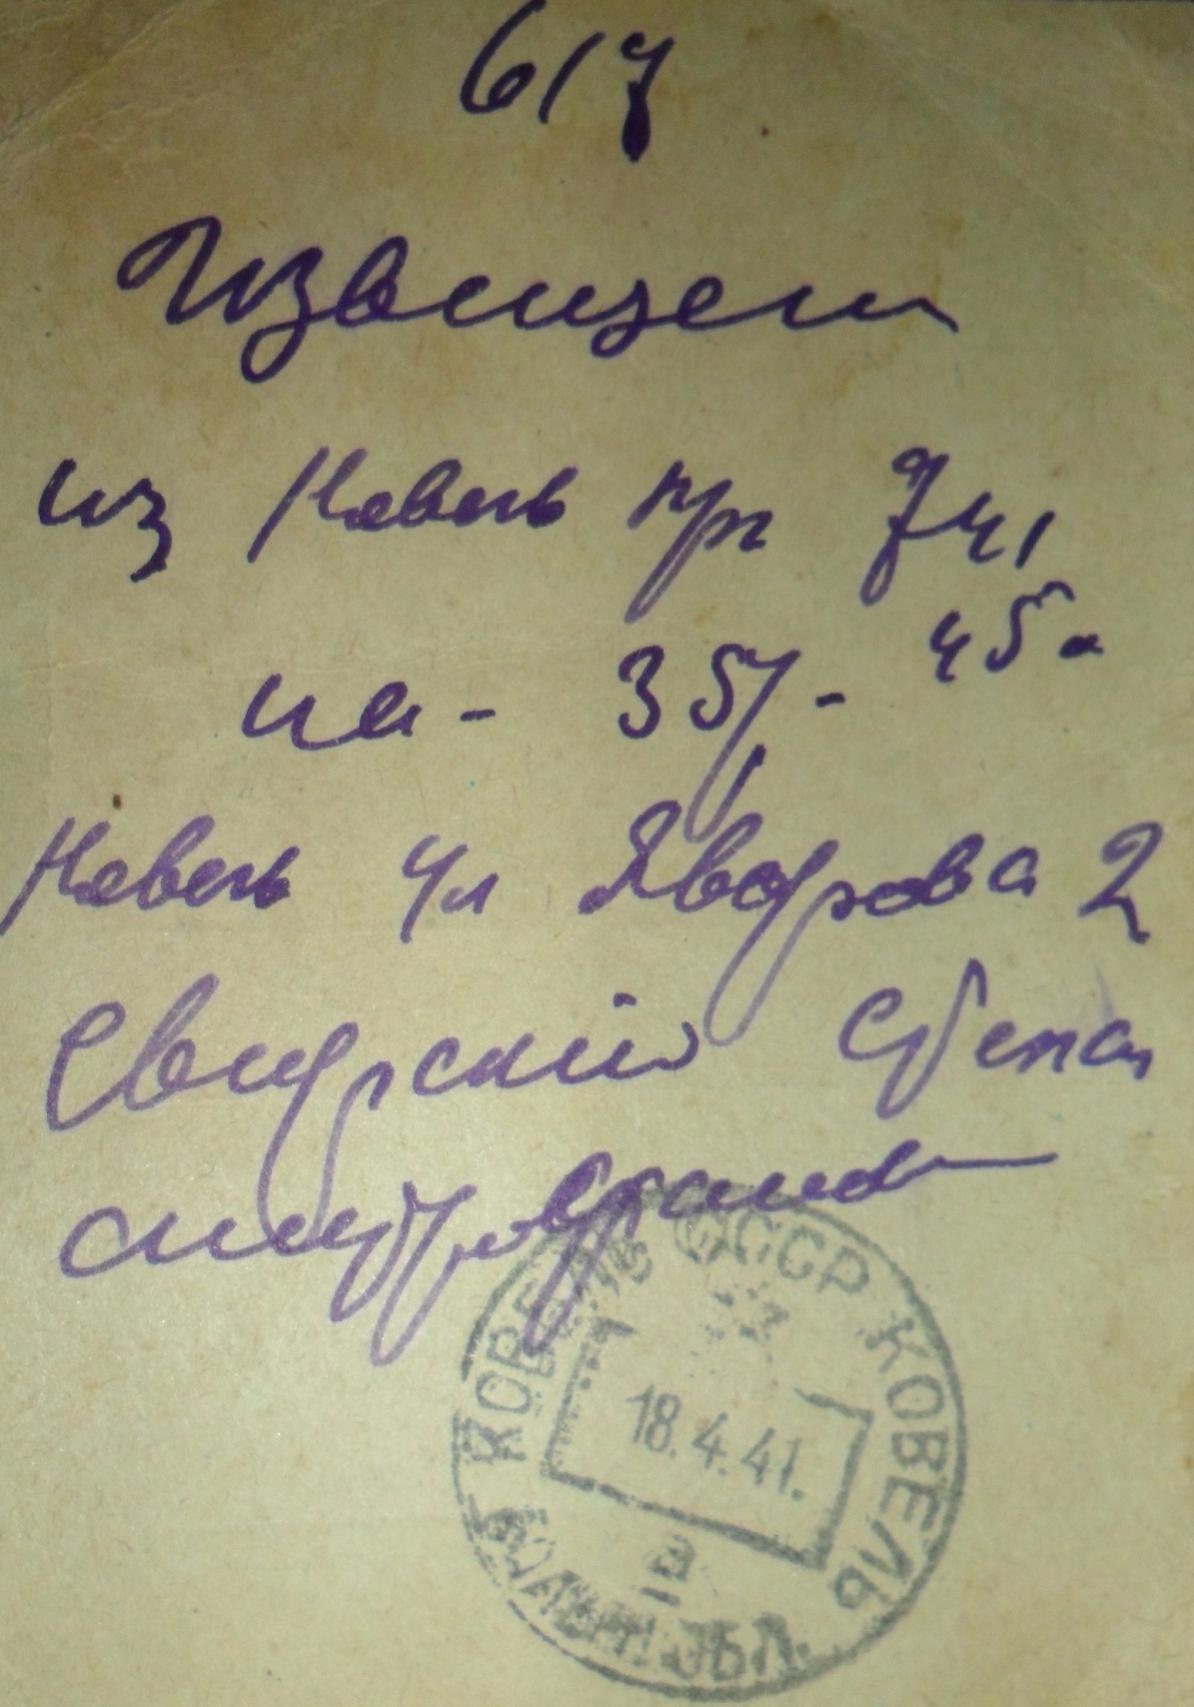 617
Извещен
из Ковель пр 741
на - 35/-
45а
Ковель ул Яворова 2
Свирский
КОВЕЛЬ СССР КОВЕЛЬ
18.4.41.